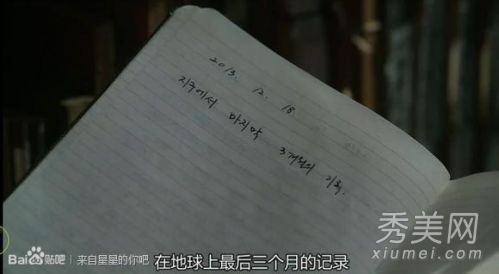 2013. 12. 18
지구에서 마지막 3개월의 기록.
在地球上最后三个月的记录
Bai du 贴吧 | 来自星星的你吧
秀美网
xiumei.com